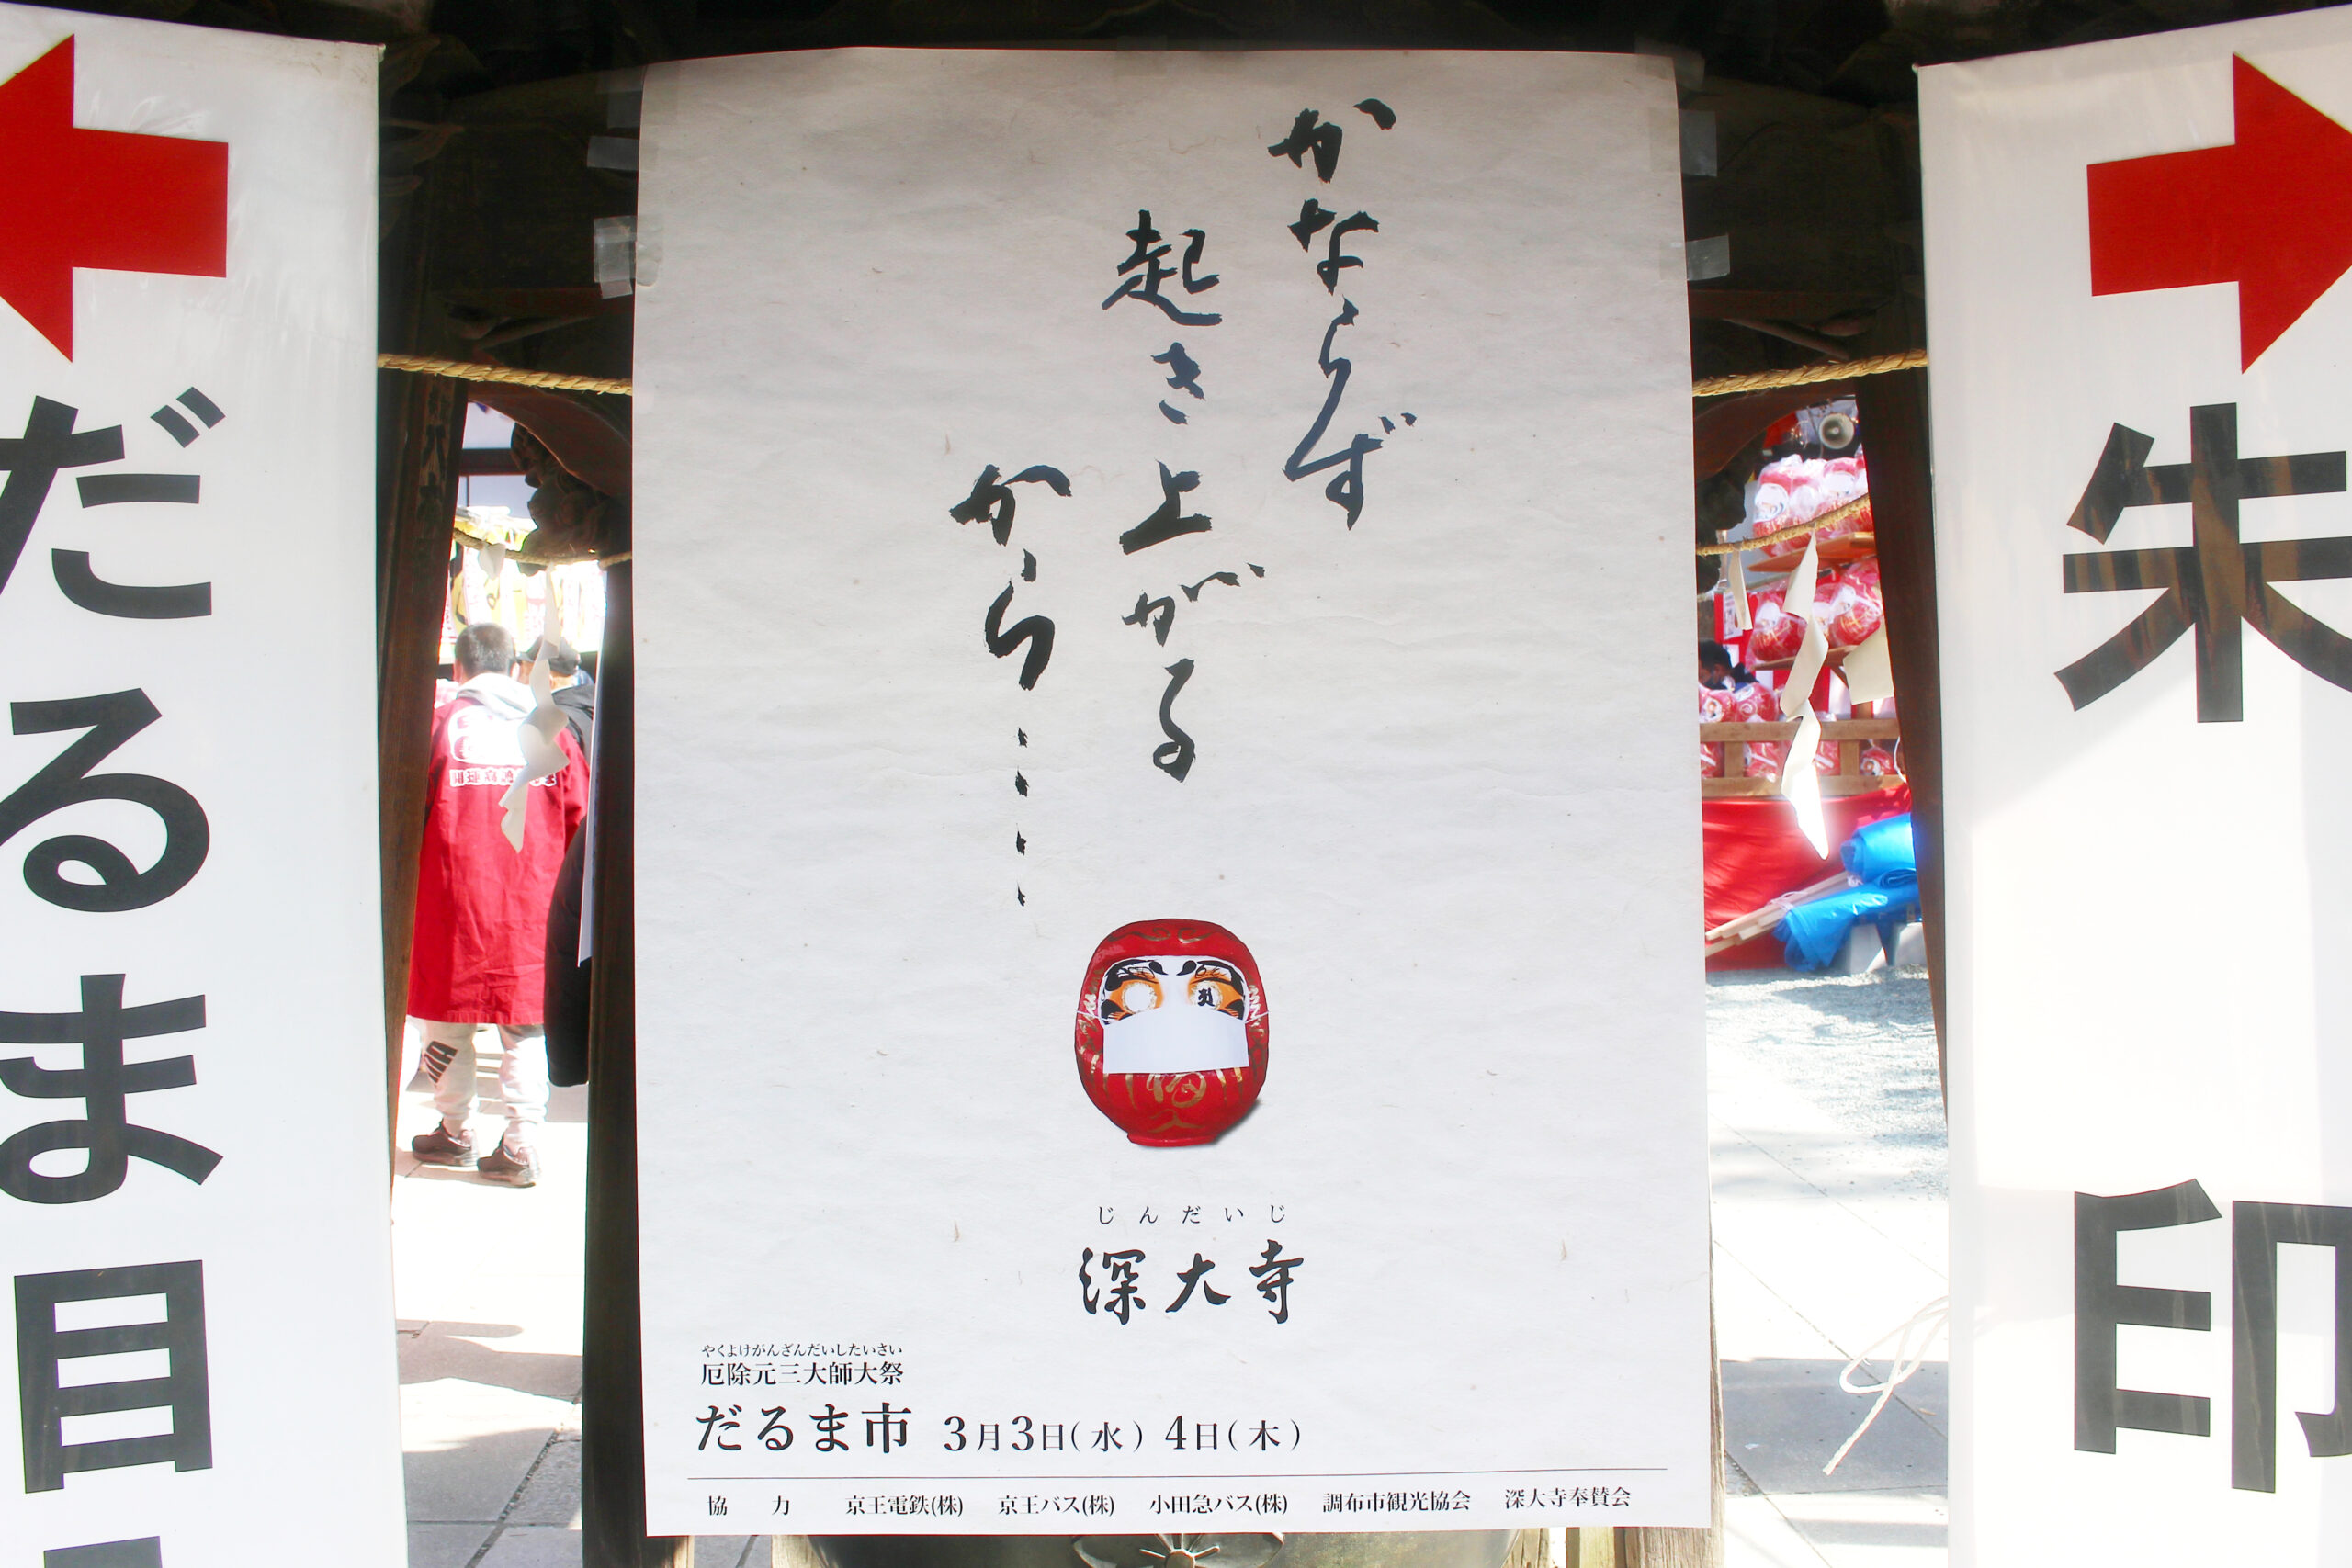 かならず
起き上がる
から・・・・
福
じんだいじ
深大寺
やくよけがんざんだいしたいさい
厄除元三大師大祭
だるま市 3月3日(水) 4日(木)
協力 京王電鉄(株) 京王バス(株) 小田急バス(株) 調布市観光協会 深大寺奉賛会
だるま目
朱印